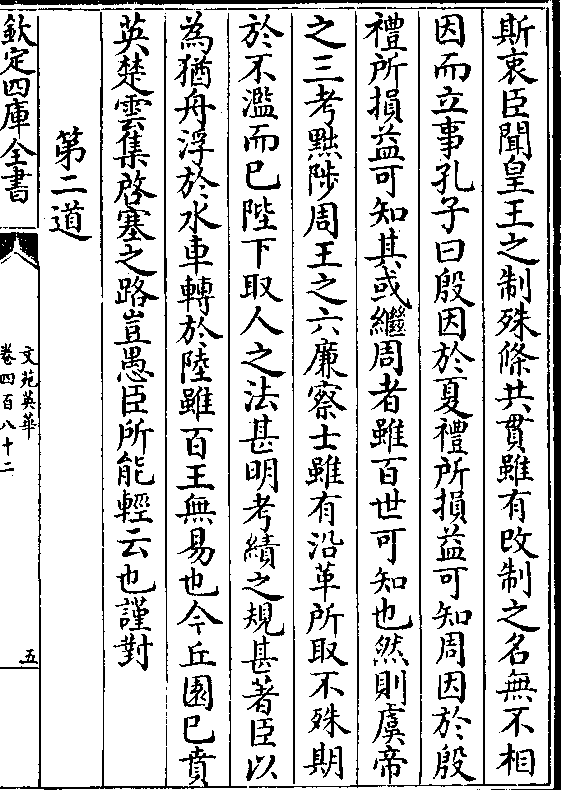 斯衷臣聞皇王之制殊條共貫雖有改制之名無不相
因而立事孔子曰殷因於夏禮所損益可知周因於殷
禮所損益可知其或繼周者雖百世可知也然則虞帝
之三考黜陟周王之六廉察士雖有沿革所取不殊期
於不濫而已陛下取人之法甚明考績之規甚著臣以
為猶舟浮於水車轉於陸雖百王無易也今丘園已賁
英楚雲集啓塞之路豈愚臣所能輕云也謹對
第二道
欽定四庫全書
文苑英華
卷四百八十二
五